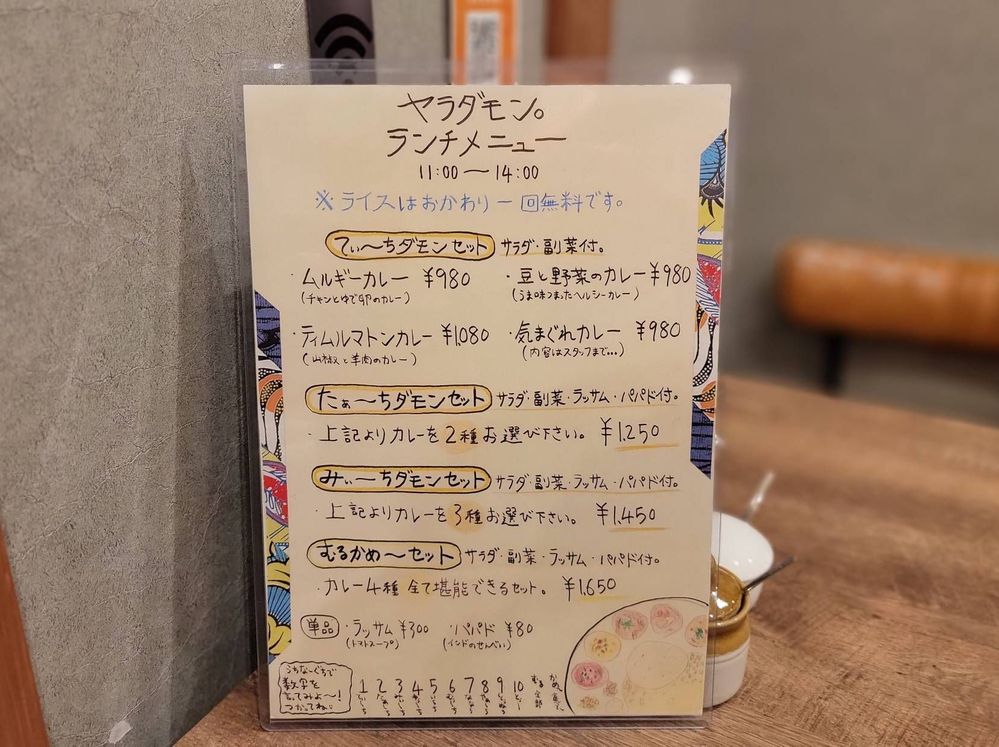 ヤラダモン。
ランチメニュー
11:00〜14:00
※ライスはおかわり一回無料です。
てぃ〜ちダモンセット サラダ・副菜付。
・ムルギーカレー ¥980 ・豆と野菜のカレー ¥980
(チキンとゆで卵のカレー) (うま味つまったヘルシーカレー)
・ティムルマトンカレー ¥1,080 ・気まぐれカレー ¥980
(山椒と羊肉のカレー) (内容はスタッフまで...)
たぁ〜ちダモンセット サラダ・副菜・ラッサム・パパド付。
・上記よりカレーを2種お選び下さい。 ¥1,250
みぃ〜ちダモンセット サラダ・副菜・ラッサム・パパド付。
・上記よりカレーを3種お選び下さい。 ¥1,450
むるかめ〜セット サラダ・副菜・ラッサム・パパド付。
・カレー4種 全て堪能できるセット。 ¥1,650
単品 ・ラッサム ¥300 ・パパド ¥80
(トマトスープ) (インドのせんべい)
うちなーぐちで
数字を
言ってみよ〜!
つかってね
1 2 3 4 5 6 7 8 9 10